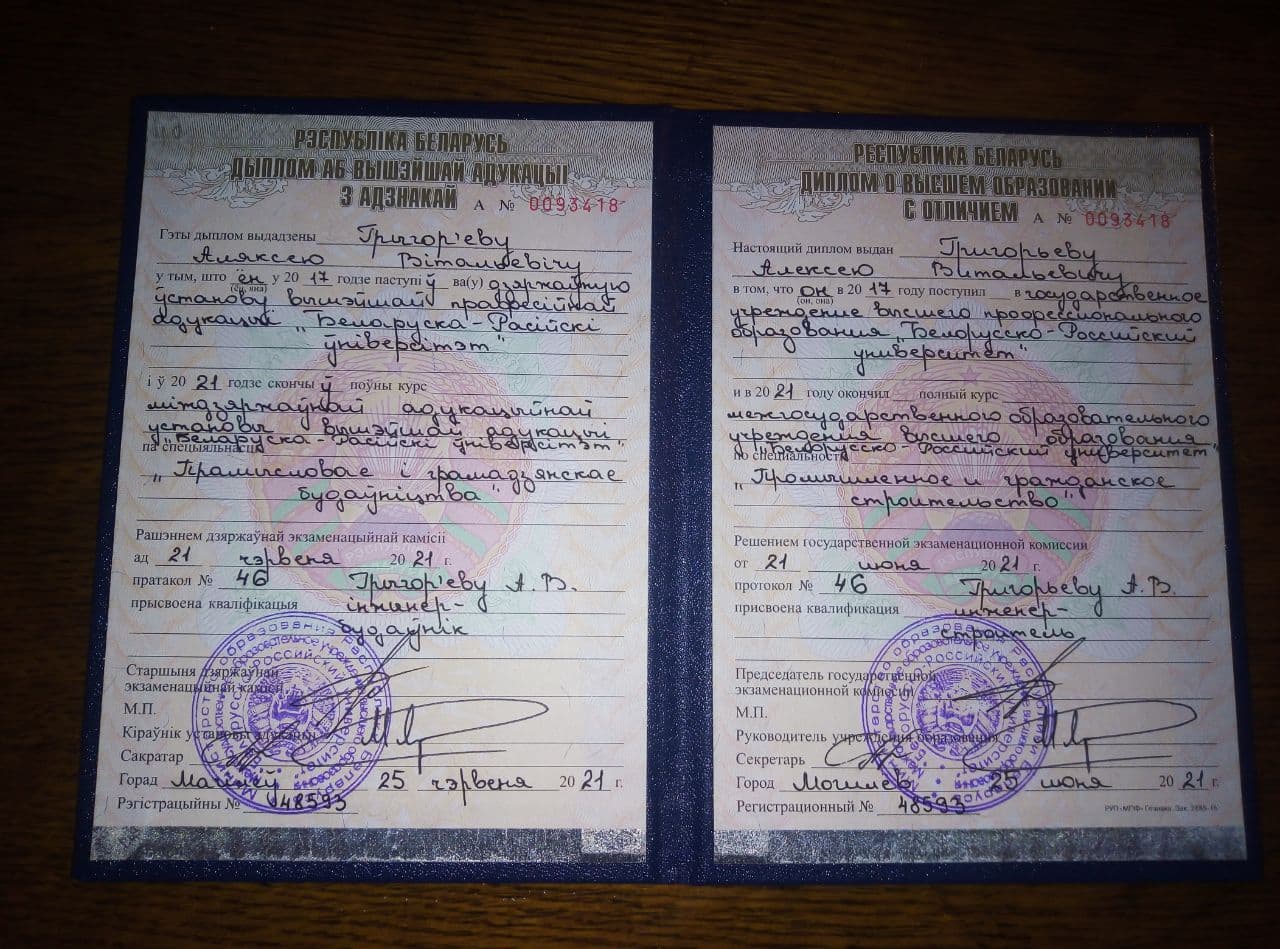 РЭСПУБЛІКА БЕЛАРУСЬ
ДЫПЛОМ АБ ВЫШЭЙШАЙ АДУКАЦЫІ
З АДЗНАКАЙ А № 0093418
Гэты дыплом выдадзены Грыгор'еву
Аляксею Вітальевічу
у тым, што ён у 2017 годзе паступіў ва(у) дзяржаўную
(ён, яна)
ўстанову вышэйшай прафесійнай
адукацыі "Беларуска-Расійскі
ўніверсітэт"
і ў 2021 годзе скончыў поўны курс
міждзяржаўнай адукацыйнай
установы вышэйшай адукацыі
"Беларуска-Расійскі ўніверсітэт"
па спецыяльнасці
"Прамысловае і грамадзянскае
будаўніцтва"
Рашэннем дзяржаўнай экзаменацыйнай камісіі
ад 21 чэрвеня 2021 г.
пратакол № 46 Грыгор'еву А.В.
прысвоена кваліфікацыя інжынер-
будаўнік
Старшыня дзяржаўнай
экзаменацыйнай камісіі
М.П.
Кіраўнік установы адукацыі
Сакратар
Горад Магілёў 25 чэрвеня 2021 г.
Рэгістрацыйны № 48593
РЕСПУБЛИКА БЕЛАРУСЬ
ДИПЛОМ О ВЫСШЕМ ОБРАЗОВАНИИ
С ОТЛИЧИЕМ А № 0093418
Настоящий диплом выдан Григорьеву
Алексею Витальевичу
в том, что он в 2017 году поступил в государственное
(он, она)
учреждение высшего профессионального
образования "Белорусско-Российский
университет"
и в 2021 году окончил полный курс
межгосударственного образовательного
учреждения высшего образования
"Белорусско-Российский университет"
по специальности
"Промышленное и гражданское
строительство"
Решением государственной экзаменационной комиссии
от 21 июня 2021 г.
протокол № 46 Григорьеву А.В.
присвоена квалификация инженер-
строитель
Председатель государственной
экзаменационной комиссии
М.П.
Руководитель учреждения образования
Секретарь
Город Могилев 25 июня 2021 г.
Регистрационный № 48593